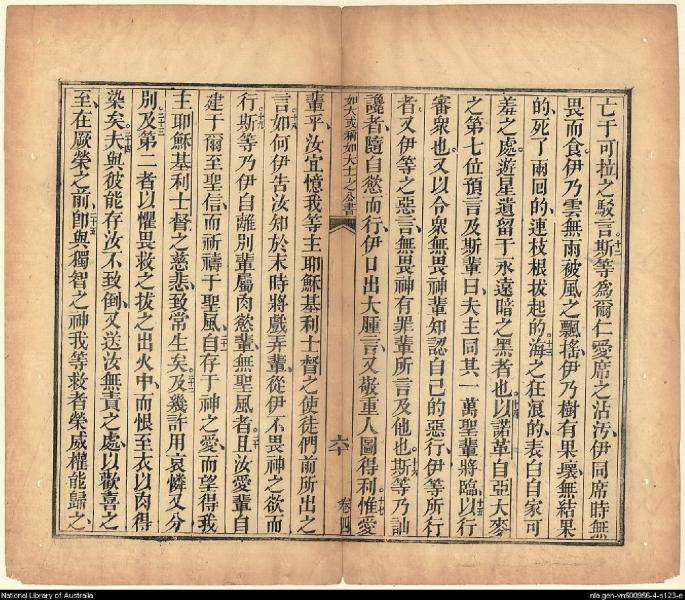 亡于可拉之駁言十二斯等為爾仁愛席之沾汚伊同席時無
畏而食伊乃雲無雨被風之飄搖伊乃樹有果壞無結果
的死了兩回的連枝根拔起的十三海之狂浪的表白自家可
羞之處遊星遺留于永遠暗之黑者也十四以諾革自亞大麥
之第七位預言及斯輩曰夫主同其一萬聖輩將臨十五以行
審眾也又以令眾無畏神輩知認自己的惡行伊等所行
者又伊等之惡言無畏神有罪輩所言及他也十六斯等乃訕
讒者隨自慾而行伊口出大腫言又敬重人圖得利十七惟愛
如大或稱如大士之公書
六十 卷四
輩乎汝宜憶我等主耶穌基利士督之使徒們前所出之
言十八如何伊告汝知於末時將戲弄輩從伊不畏神之欲而
行十九斯等乃伊自離別輩屬肉慾輩無聖風者二十且汝愛輩自
建于爾至聖信而祈禱于聖風二十一自存于神之愛而望得我
主耶穌基利士督之慈悲致常生矣二十二及幾許用哀憐又分
別二十三及第二者以懼畏救之拔之出火中而恨至衣以肉得
染矣二十四夫與彼能存汝不致倒又送汝無責之處以歡喜之
至在厥榮之前二十五即與獨智之神我等救者榮威權能歸之
National Library of Australia
nla.gen-vn500956-4-s123-e